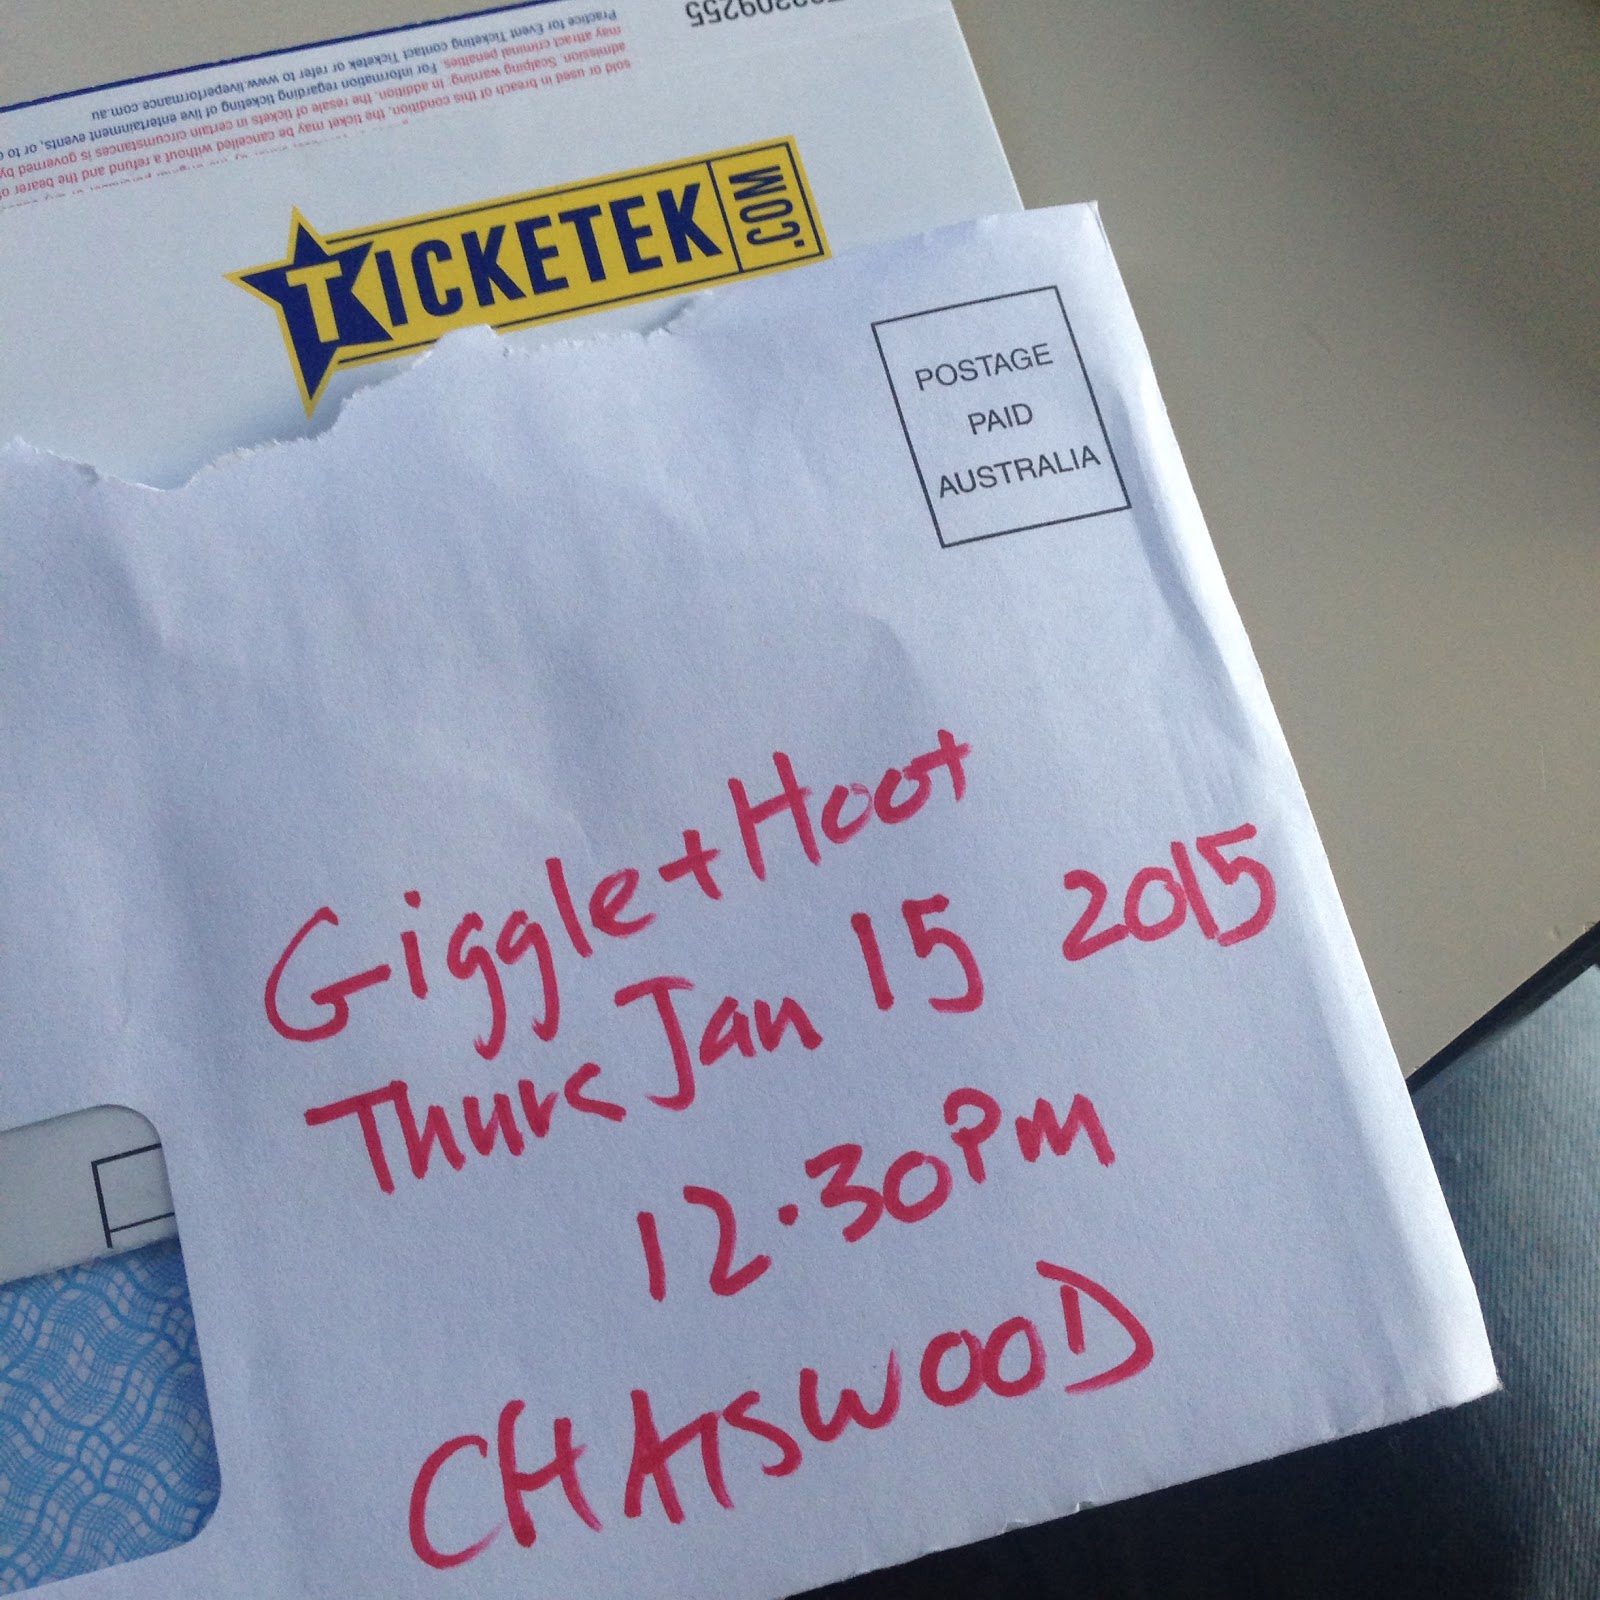 02209255
Practice for Event Ticketing contact Ticketek or refer to www.liveperformance.com.au
may attract criminal penalties. For information regarding ticketing of live entertainment events, or to
admission. Scalping warning: In addition, the resale of tickets in certain circumstances is governed by
sold or used in breach of this condition, the ticket may be cancelled without a refund and the bearer of
TICKETEK.COM
POSTAGE
PAID
AUSTRALIA
Giggle + Hoot
Thurs Jan 15 2015
12.30PM
CHATSWOOD